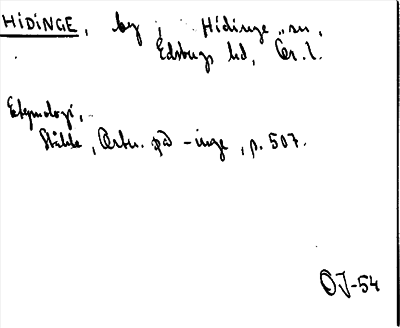 HIDINGE, by i Hidinge sn,
Edsbergs hd, Ör. l.
Etymologi,
Ståhle, Ortn. på -inge, p. 507.
OJ-54